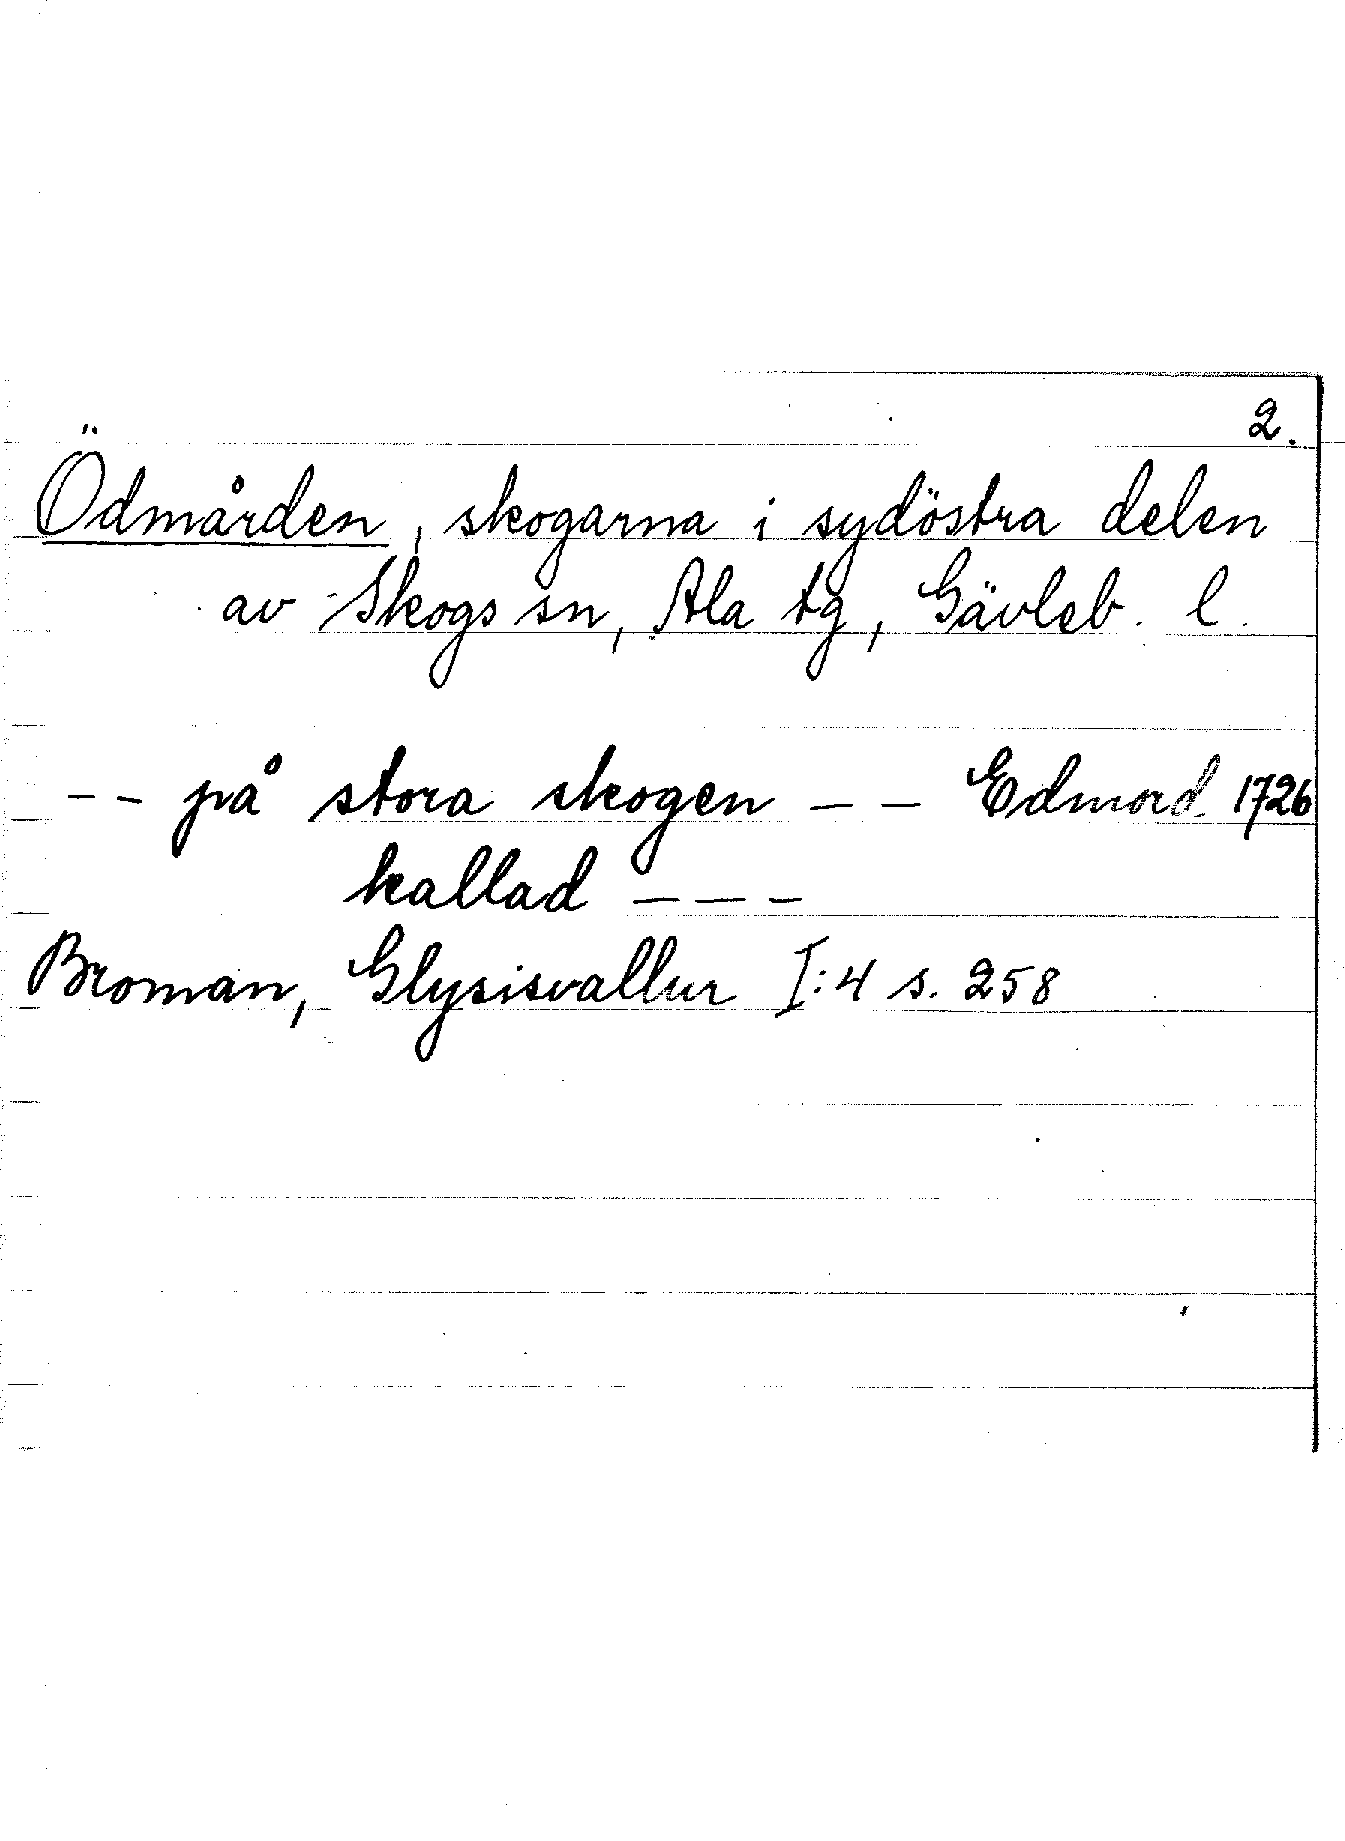 2.
Ödmården, skogarna i sydöstra delen
av Skogs sn, Ala tg, Gävleb. l.
-- på stora skogen -- Edmord 1726
kallad ---
Broman, Glysisvallur I:4 s. 258